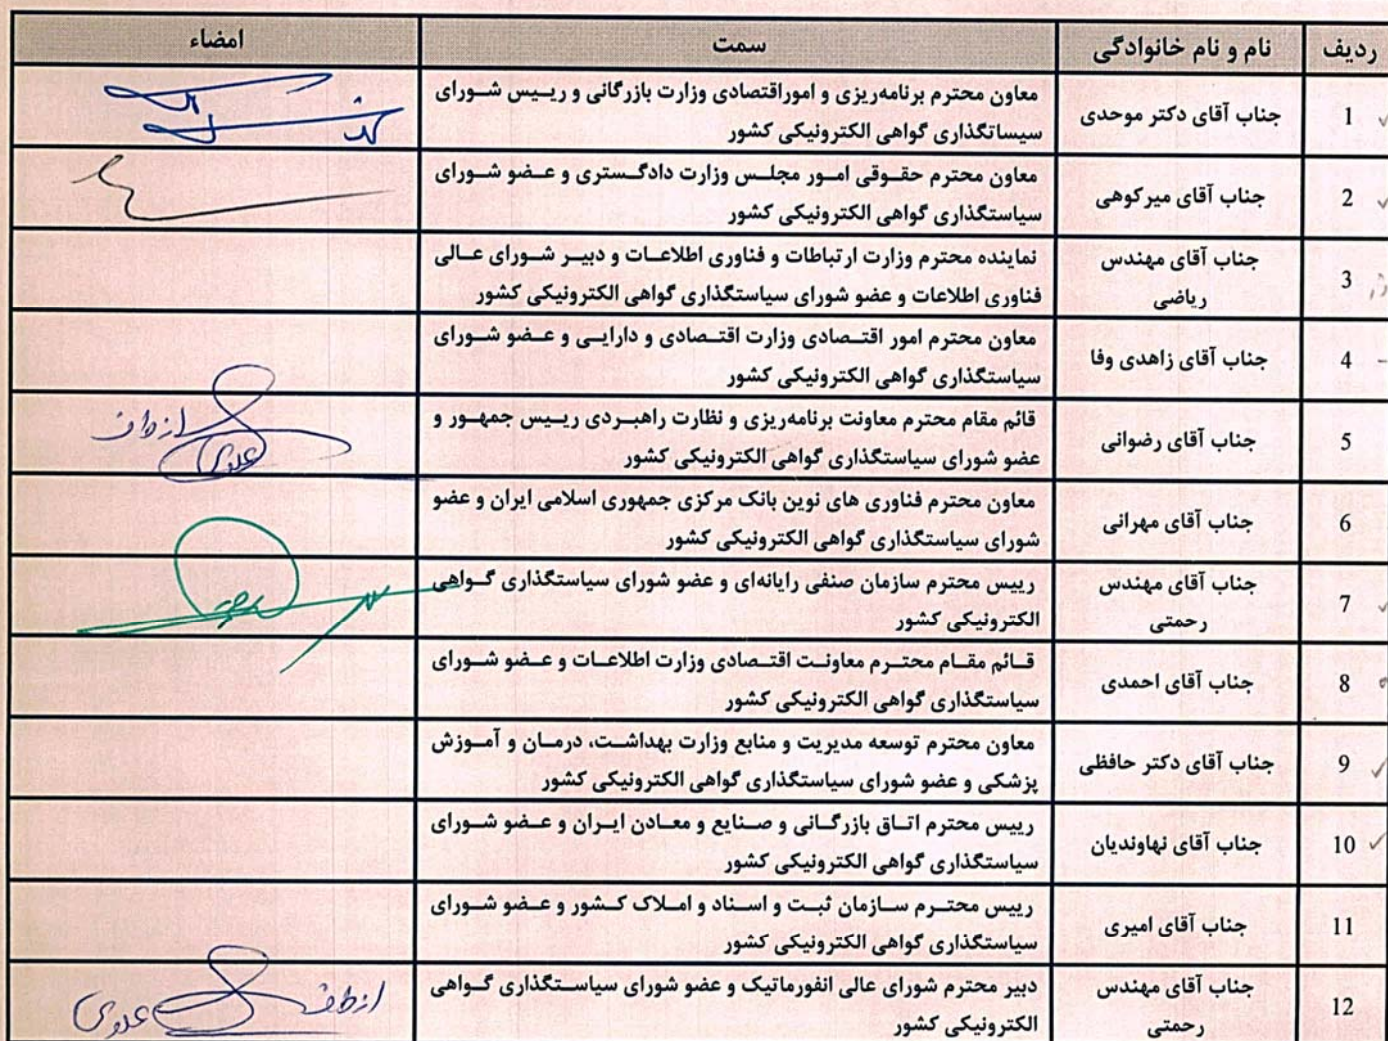 ردیف نام و نام خانوادگی سمت امضاء
1 جناب آقای دکتر موحدی معاون محترم برنامه‌ریزی و اموراقتصادی وزارت بازرگانی و رییس شورای
سیساتگذاری گواهی الکترونیکی کشور
2 جناب آقای میرکوهی معاون محترم حقوقی امور مجلس وزارت دادگستری و عضو شورای
سیاستگذاری گواهی الکترونیکی کشور
3 جناب آقای مهندس نماینده محترم وزارت ارتباطات و فناوری اطلاعات و دبیر شورای عالی
ریاضی فناوری اطلاعات و عضو شورای سیاستگذاری گواهی الکترونیکی کشور
4 جناب آقای زاهدی وفا معاون محترم امور اقتصادی وزارت اقتصادی و دارایی و عضو شورای
سیاستگذاری گواهی الکترونیکی کشور
5 جناب آقای رضوانی قائم مقام محترم معاونت برنامه‌ریزی و نظارت راهبردی رییس جمهور و
عضو شورای سیاستگذاری گواهی الکترونیکی کشور
از طرف
علوی
6 جناب آقای مهرانی معاون محترم فناوری های نوین بانک مرکزی جمهوری اسلامی ایران و عضو
شورای سیاستگذاری گواهی الکترونیکی کشور
7 جناب آقای مهندس رییس محترم سازمان صنفی رایانه‌ای و عضو شورای سیاستگذاری گواهی
رحمتی الکترونیکی کشور
8 جناب آقای احمدی قائم مقام محترم معاونت اقتصادی وزارت اطلاعات و عضو شورای
سیاستگذاری گواهی الکترونیکی کشور
9 جناب آقای دکتر حافظی معاون محترم توسعه مدیریت و منابع وزارت بهداشت، درمان و آموزش
پزشکی و عضو شورای سیاستگذاری گواهی الکترونیکی کشور
10 جناب آقای نهاوندیان رییس محترم اتاق بازرگانی و صنایع و معادن ایران و عضو شورای
سیاستگذاری گواهی الکترونیکی کشور
11 جناب آقای امیری رییس محترم سازمان ثبت و اسناد و املاک کشور و عضو شورای
سیاستگذاری گواهی الکترونیکی کشور
12 جناب آقای مهندس دبیر محترم شورای عالی انفورماتیک و عضو شورای سیاستگذاری گواهی
رحمتی الکترونیکی کشور
از طرف علوی